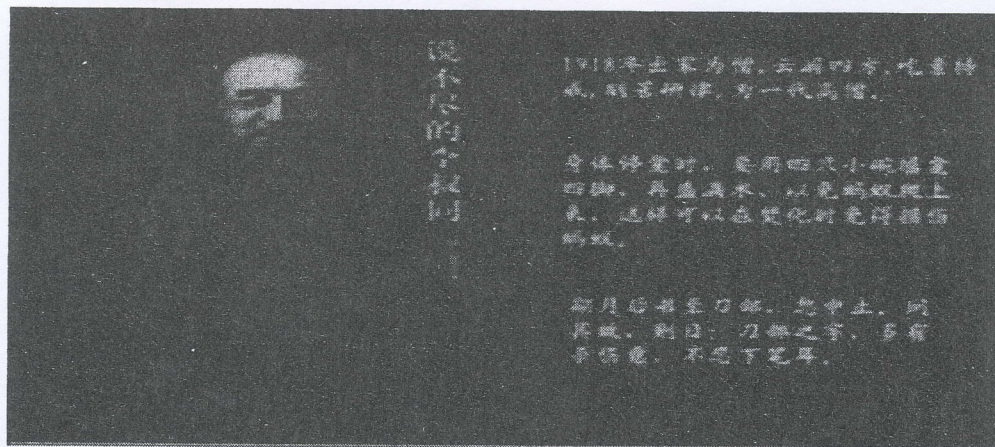 说不尽的李叔同
1918年出家为僧,云游四方,吃素持
戒,刻苦研律,为一代高僧。
身体停龛时,要用四只小碗填龛
四脚,再盛满水,以免蚂蚁爬上
来,这样可以在焚化时免得损伤
蚂蚁。
月后写至刀部,忽中止,问
其故,则曰:刀部之字,多有
杀伤意,不忍下笔耳。